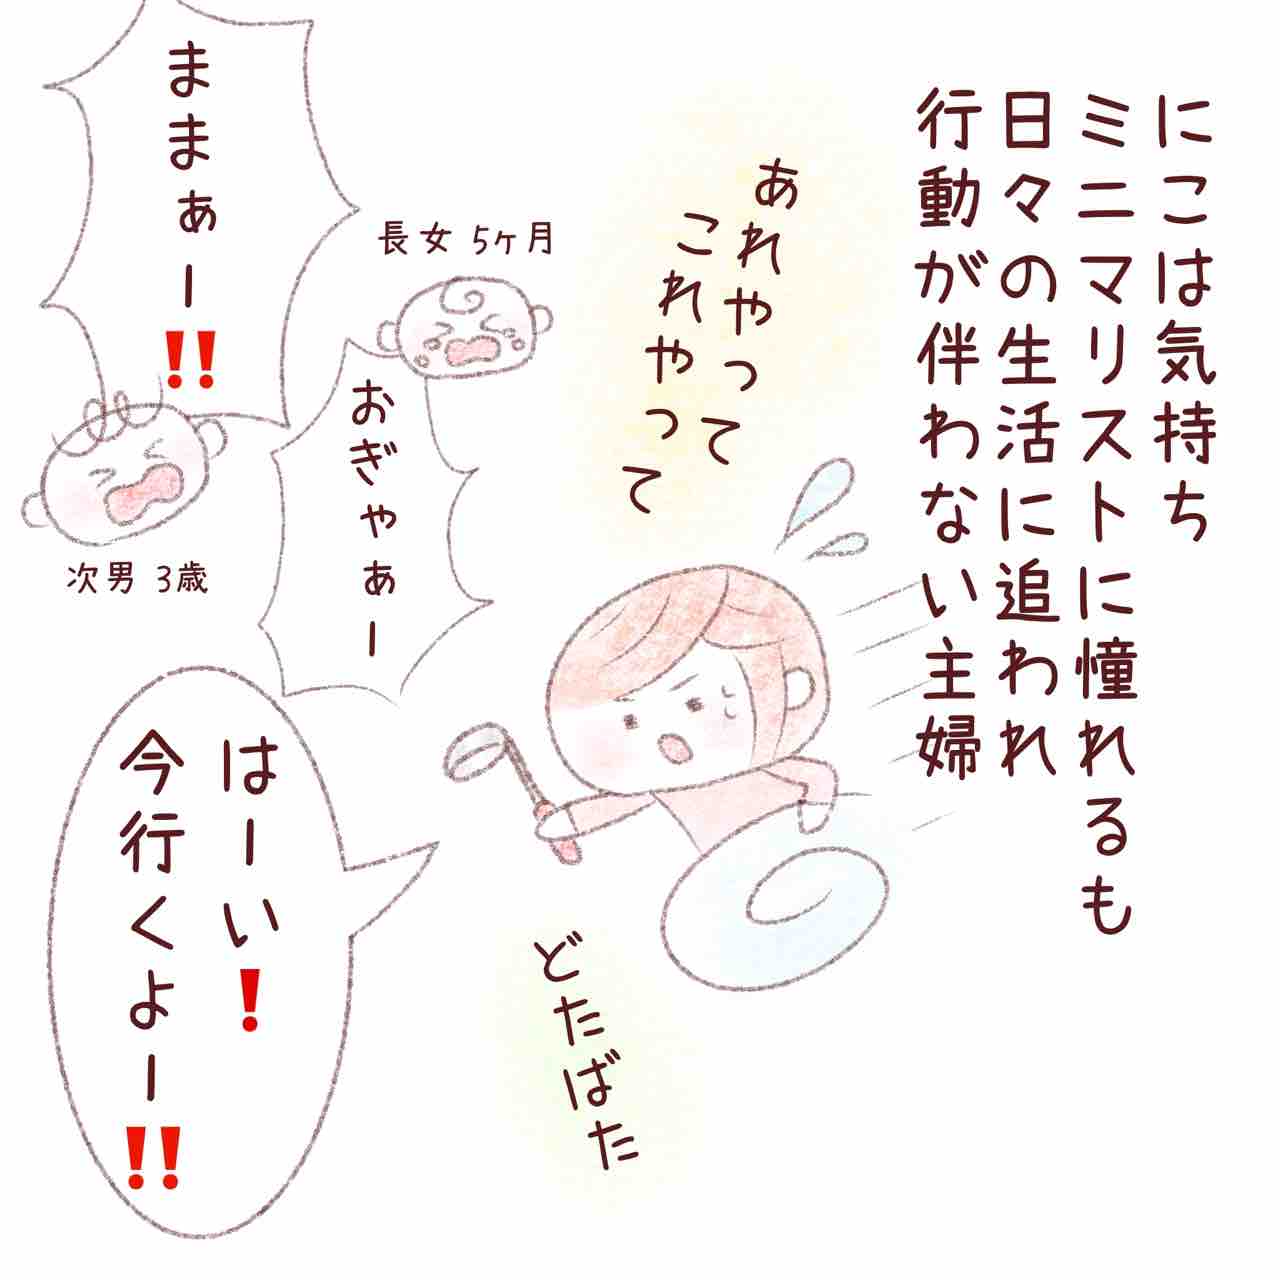 にこは気持ち
ミニマリストに憧れるも
日々の生活に追われ
行動が伴わない主婦
あれやって
これやって
長女 5ヶ月
おぎゃぁー
ままぁー‼
次男 3歳
はーい❗
今行くよー‼
どたばた